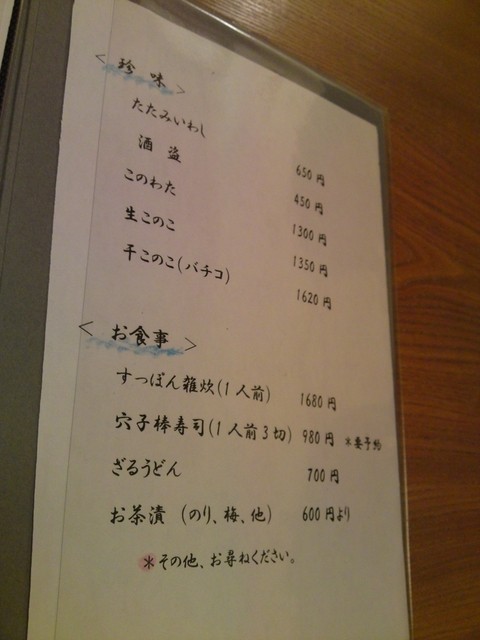 ＜珍味＞
たたみいわし 650円
酒盗 450円
このわた 1300円
生このこ 1350円
干このこ(バチコ) 1620円
＜お食事＞
すっぽん雑炊(1人前) 1680円
穴子棒寿司(1人前3切) 980円 ＊要予約
ざるうどん 700円
お茶漬 (のり、梅、他) 600円より
＊その他、お尋ねください。